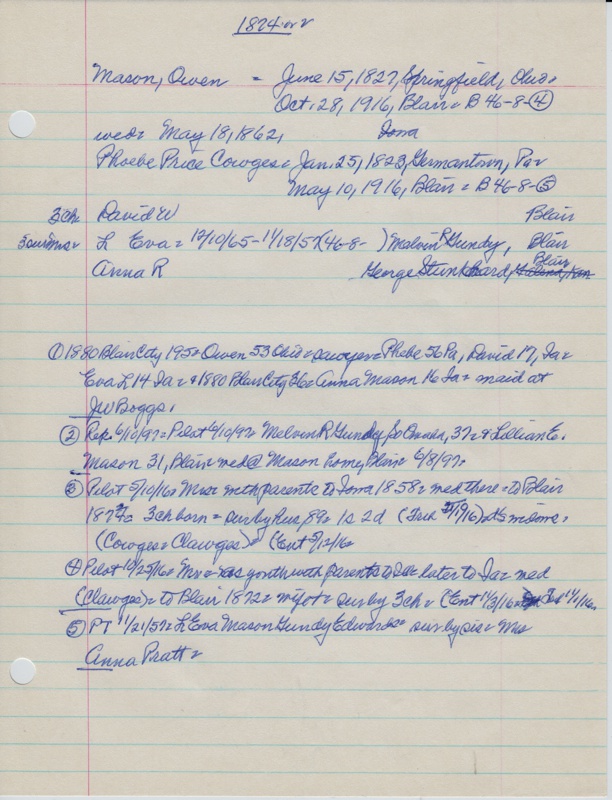 1874
Mason, Owen = June 15, 1827, Springfield, Ohio=
Oct. 28, 1916, Blair= B 46-8-④
wed= May 18, 1862, Iowa
Phoebe Price Cowges= Jan. 25, 1823, Germantown, Pa=
May 10, 1916, Blair= B 46-8-③
3ch= David W Blair
L Eva= 12/10/65-11/18/57(46-8- ) Melvin R Gundy, Blair
Anna R George Stunkard, Blair
① 1880 Blair City 195= Owen 53 Ohio= sawyer= Phebe 56 Pa, David 17, Ia=
Eva L 14 Ia= & 1880 Blair City 26= Anna Mason 16 Ia= maid at
JW Boggs.
② Rep. 6/10/97= Pilot 6/10/97= Melvin R Gundy So Omaha, 37= & Lillian E.
Mason 31, Blair= wed@ Mason home, Blair= 6/8/97=
③ Pilot 5/10/16= Mrs= with parents to Iowa 1858= wed there= to Blair
3ch born= sur by hus, 89= 1s 2d
(Cowges= Clawges)= (Ent 5/12/16=
④ Pilot 10/25/16= Mr= youth with parents to later to Ia= wed
(Clawges)= to Blair 1872= sur by 3ch= (Ent 11/3/16=
⑤ PT 11/21/57= L Eva Mason Gundy Edwards= sur by sis= Mrs
Anna Pratt=